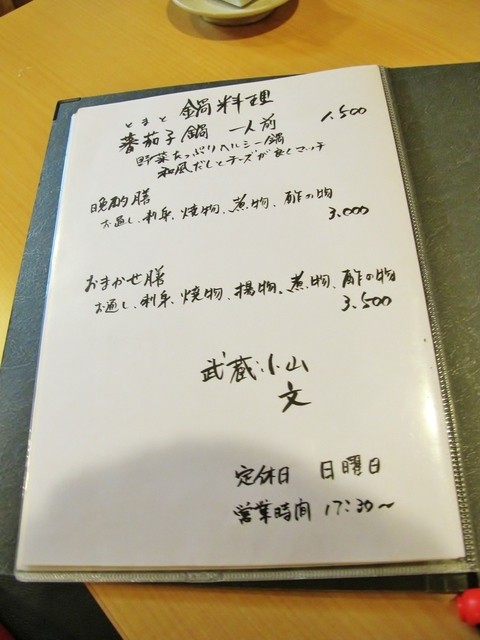 鍋料理
とまと
蕃茄子鍋 一人前 1.500
野菜たっぷりヘルシー鍋
和風だしとチーズが良くマッチ
晩酌膳
お通し、刺身、焼物、煮物、酢の物
3.000
おまかせ膳
お通し、刺身、焼物、揚物、煮物、酢の物
3.500
武蔵小山
文
定休日 日曜日
営業時間 17:30~